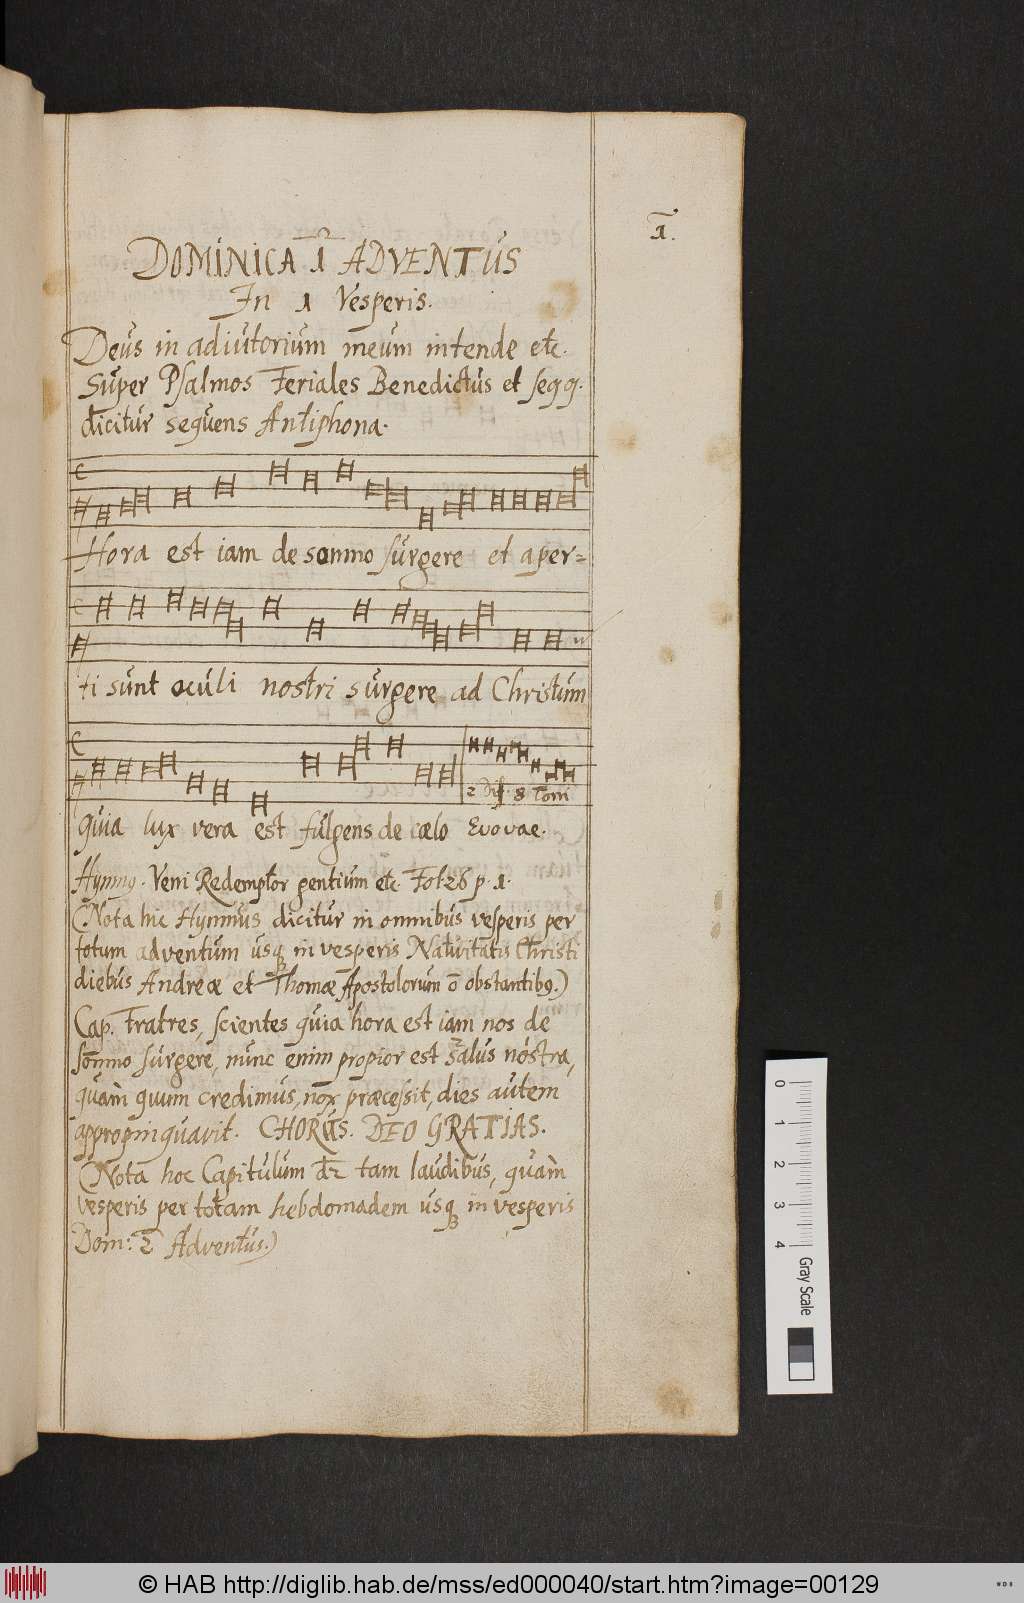 1.
DOMINICA 1 ADVENTUS
In 1 Vesperis.
Deus in adiutorium meum intende etc.
Super Psalmos Feriales Benedictus et seqq.
dicitur sequens Antiphona.
Hora est iam de somno surgere et aper=
ti sunt oculi nostri surgere ad Christum
2 Dif. 8 Toni
quia lux vera est fulgens de cœlo Evovae.
Hymnus. Veni Redemptor gentium etc. Fol. 26 p. 1.
(Nota hic Hymnus dicitur in omnibus vesperis per
totum adventum usq in vesperis Nativitatis Christi
diebus Andreæ et Thomæ Apostolorum ō obstantibus.)
Cap. Fratres, scientes quia hora est iam nos de
somno surgere, nunc enim propior est salus nostra,
quàm quum credimus, nox præcessit, dies autem
appropinquavit. CHORUS. DEO GRATIAS.
(Nota hoc Capitulum dr tam laudibus, quàm
vesperis per totam hebdomadem usq in vesperis
Dom: 2 Adventus.)
0 1 2 3 4 Gray Scale
© HAB http://diglib.hab.de/mss/ed000040/start.htm?image=00129